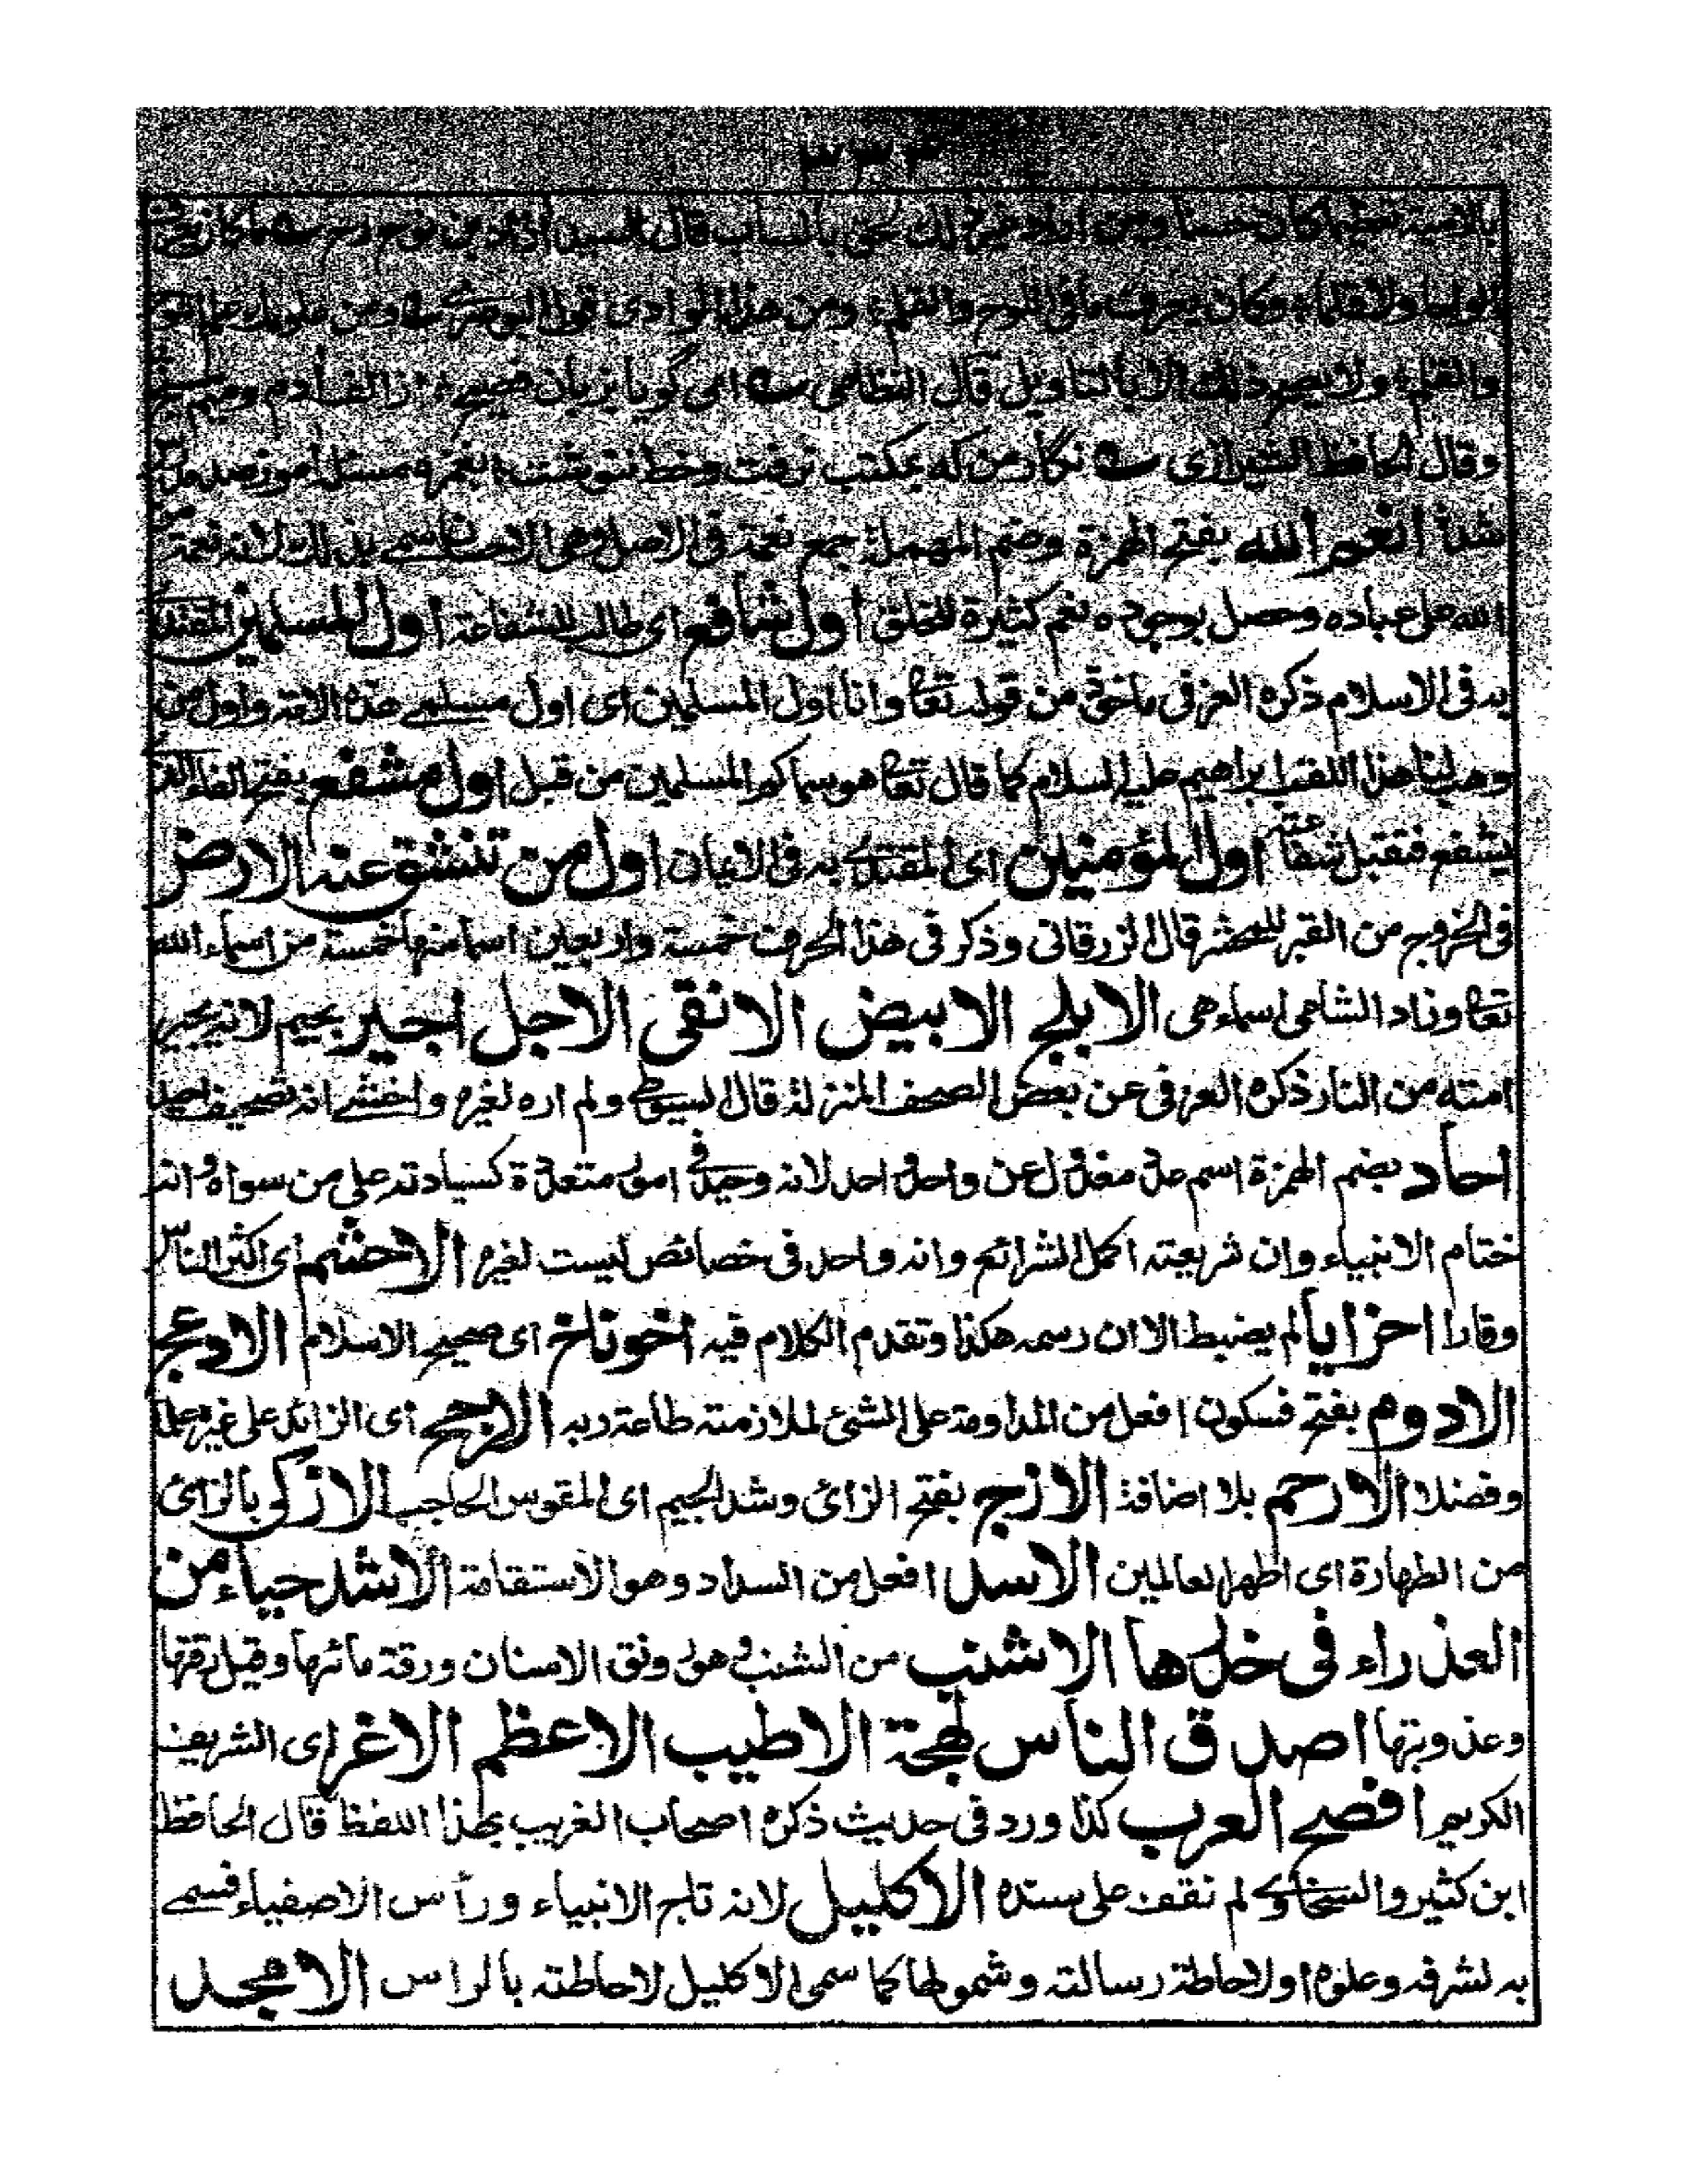 ٣٣٣
بالامية تعظيما كان حسنا ومن اراد غير ذلك
وكان يعرف ما فى اللوح والقلم ومن هذا الوادى قول البوصيرى ومن علومك علم اللوح
والقلم ولا يصح ذلك الا بالتاويل قال النظامى امى گويا بزبان فصيح از الف آدم وميم مسيح
وقال الحافظ الشيرازى نگار من كه بمكتب نرفت وخط ننوشت بغمزه مسئله آموز صد مدرس
شد انعم الله بفتح الهمزة وضم المهملة جمع نعمة فى الاصل وهو الاحسان سمى بذلك لانه نعمة من
الله على عباده وحصل بوجوده نعم كثيرة للخلق اول شافع اى طالب للشفاعة اول المسلمين المقتدى
به فى الاسلام ذكره العزفى ماخوذ من قوله تعا وانا اول المسلمين اى اول مسلمى هذه الامة واول من
وهب لنا هذا اللقب ابراهيم عليه السلام كما قال تعا هو سماكم المسلمين من قبل اول مشفع بفتح الفاء الذى
يشفع فتقبل شفاعته اول المؤمنين اى المقتدى به فى الايمان اول من تنشق عنه الارض
فى الخروج من القبر للحشر قال الزرقانى وذكر فى هذا الحرف خمسة واربعين اسما منها خمسة من اسماء الله
تعا وزاد الشامى اسماء هى الابلج الابيض الاتقى الاجل اجير بجيم لانه يجير
امته من النار ذكره العزفى عن بعض الصحف المنزلة قال السيوطى ولم اره لغيره واخشى انه تصحيف احيد
احاد بضم الهمزة اسم عدد معدول عن واحد واحد لانه وحيد فى امور متعددة كسيادته على من سواه وانه
ختام الانبياء وان شريعته اكمل الشرائع وانه واحد فى خصائص ليست لغيره الاحشم اى اكثر الناس
وقارا احزايا لم يضبط الا ان رسمه هكذا وتقدم الكلام فيه اخوناخ اى صحيح الاسلام الادعج
الادوم بفتح فسكون افعل من المداومة على الشئ لملازمته طاعة ربه الارجح اى الزائد على غيره علما
وفضلا الارحم بلا اضافة الازج بفتح الزائ وشد الجيم اى المقوس الحاجب الازكى بالزائ
من الطهارة اى اطهر العالمين الاسد افعل من السداد وهو الاستقامة الاشد حياء من
العذراء فى خدرها الاشنب من الشنب وهو رونق الاسنان ورقة مائها وقيل رقتها
وعذوبتها اصدق الناس لهجة الاطيب الاعظم الاغر اى الشريف
الكريم افصح العرب كذا ورد فى حديث ذكره اصحاب الغريب بهذا اللفظ قال الحافظ
ابن كثير والسخاوى لم نقف على سنده الاكليل لانه تاج الانبياء ورأس الاصفياء فسمى
به لشرفه وعلوه او لاحاطة رسالته وشمولها كما سمى الاكليل لاحاطته بالراس الامجد